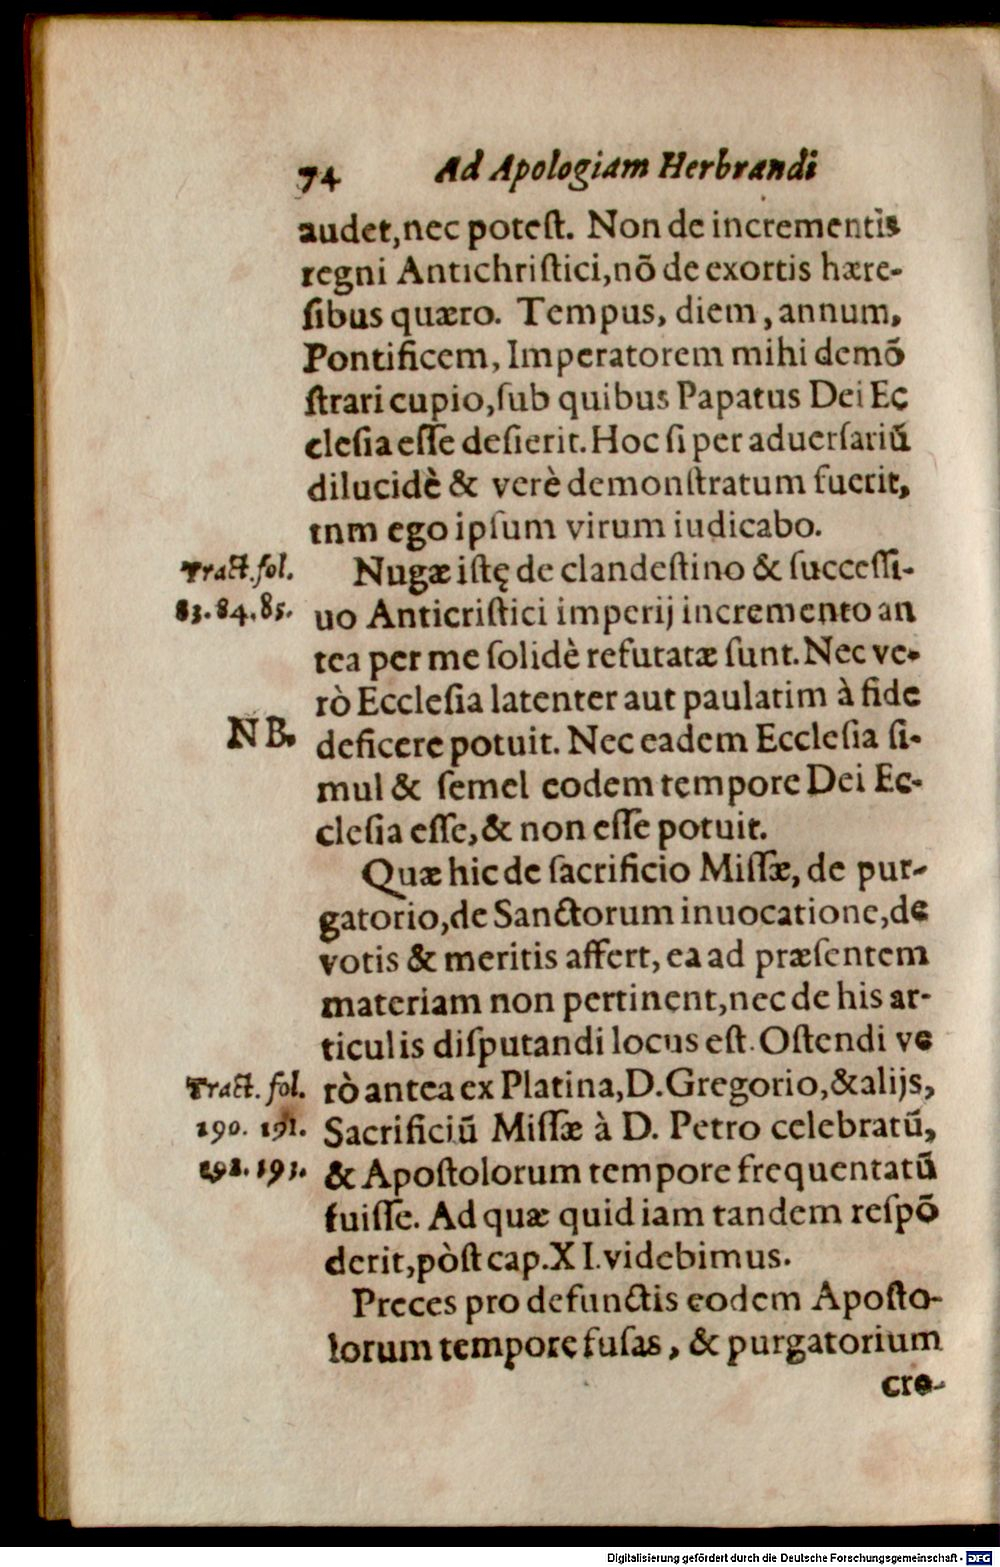 74 Ad Apologiam Herbrandi
audet,nec potest. Non de incrementis
regni Antichristici,nõ de exortis hære-
sibus quæro. Tempus, diem, annum,
Pontificem, Imperatorem mihi demõ
strari cupio,sub quibus Papatus Dei Ec
clesia esse desierit. Hoc si per aduersariũ
dilucidè & verè demonstratum fuerit,
tnm ego ipsum virum iudicabo.
Tract. fol.
83. 84. 85.
Nugæ istę de clandestino & successi-
uo Anticristici imperij incremento an
tea per me solidè refutatæ sunt. Nec ve-
rò Ecclesia latenter aut paulatim à fide
NB.
deficere potuit. Nec eadem Ecclesia si-
mul & semel eodem tempore Dei Ec-
clesia esse,& non esse potuit.
Quæ hic de sacrificio Missæ, de pur-
gatorio,de Sanctorum inuocatione,de
votis & meritis affert, ea ad præsentem
materiam non pertinent,nec de his ar-
ticulis disputandi locus est. Ostendi ve
Tract. fol.
190. 191.
192. 193.
rò antea ex Platina,D.Gregorio,&alijs,
Sacrificiũ Missæ à D. Petro celebratũ,
& Apostolorum tempore frequentatũ
fuisse. Ad quæ quid iam tandem respõ
derit,pòst cap.XI.videbimus.
Preces pro defunctis eodem Aposto-
lorum tempore fusas, & purgatorium
cre-
Digitalisierung gefördert durch die Deutsche Forschungsgemeinschaft - DFG